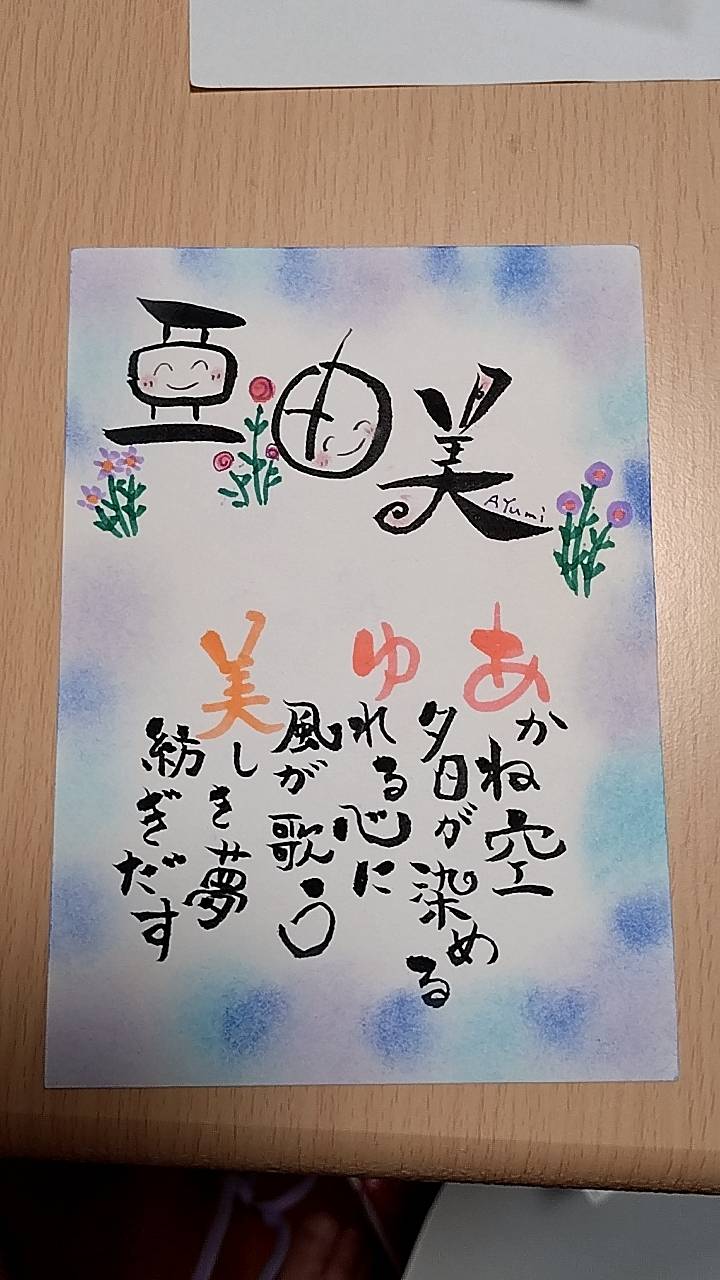 亜由美
AYumi
あかね空
夕日が染める
ゆれる心に
風が歌う
美しき夢
紡ぎだす